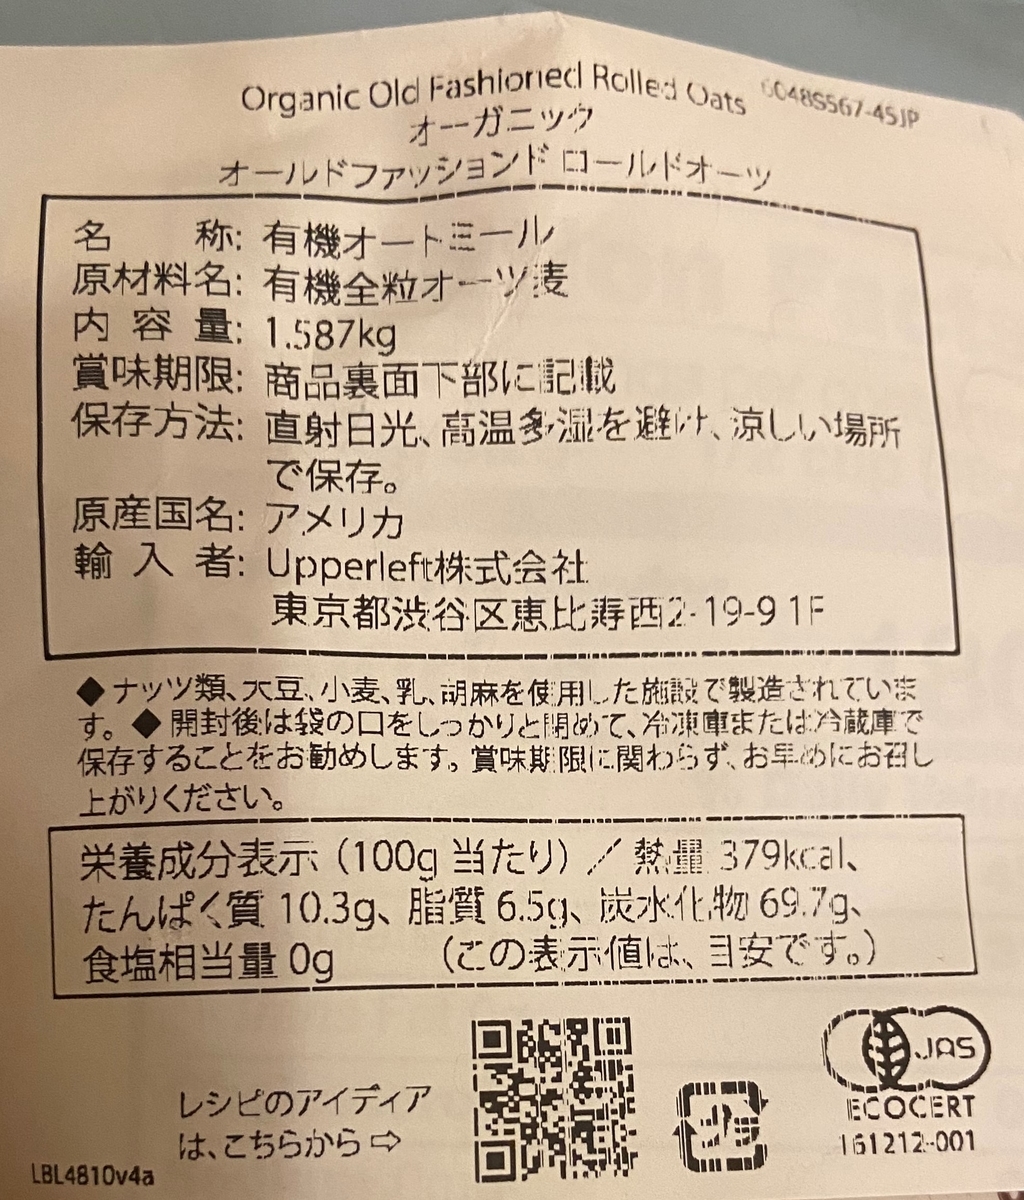 Organic Old Fashioned Rolled Oats 6048S567-45JP
オーガニック
オールドファッションド ロールドオーツ
名 称: 有機オートミール
原材料名: 有機全粒オーツ麦
内 容 量: 1.587kg
賞味期限: 商品裏面下部に記載
保存方法: 直射日光、高温多湿を避け、涼しい場所
で保存。
原産国名: アメリカ
輸 入 者: Upperleft株式会社
東京都渋谷区恵比寿西2-19-9 1F
◆ナッツ類、大豆、小麦、乳、胡麻を使用した施設で製造されていま
す。◆開封後は袋の口をしっかりと閉めて、冷凍庫または冷蔵庫で
保存することをお勧めします。賞味期限に関わらず、お早めにお召し
上がりください。
栄養成分表示（100g 当たり）／熱量 379kcal、
たんぱく質 10.3g、脂質 6.5g、炭水化物 69.7g、
食塩相当量 0g （この表示値は、目安です。）
レシピのアイディア
は、こちらから⇨
プラ
JAS
ECOCERT
161212-001
LBL4810v4a